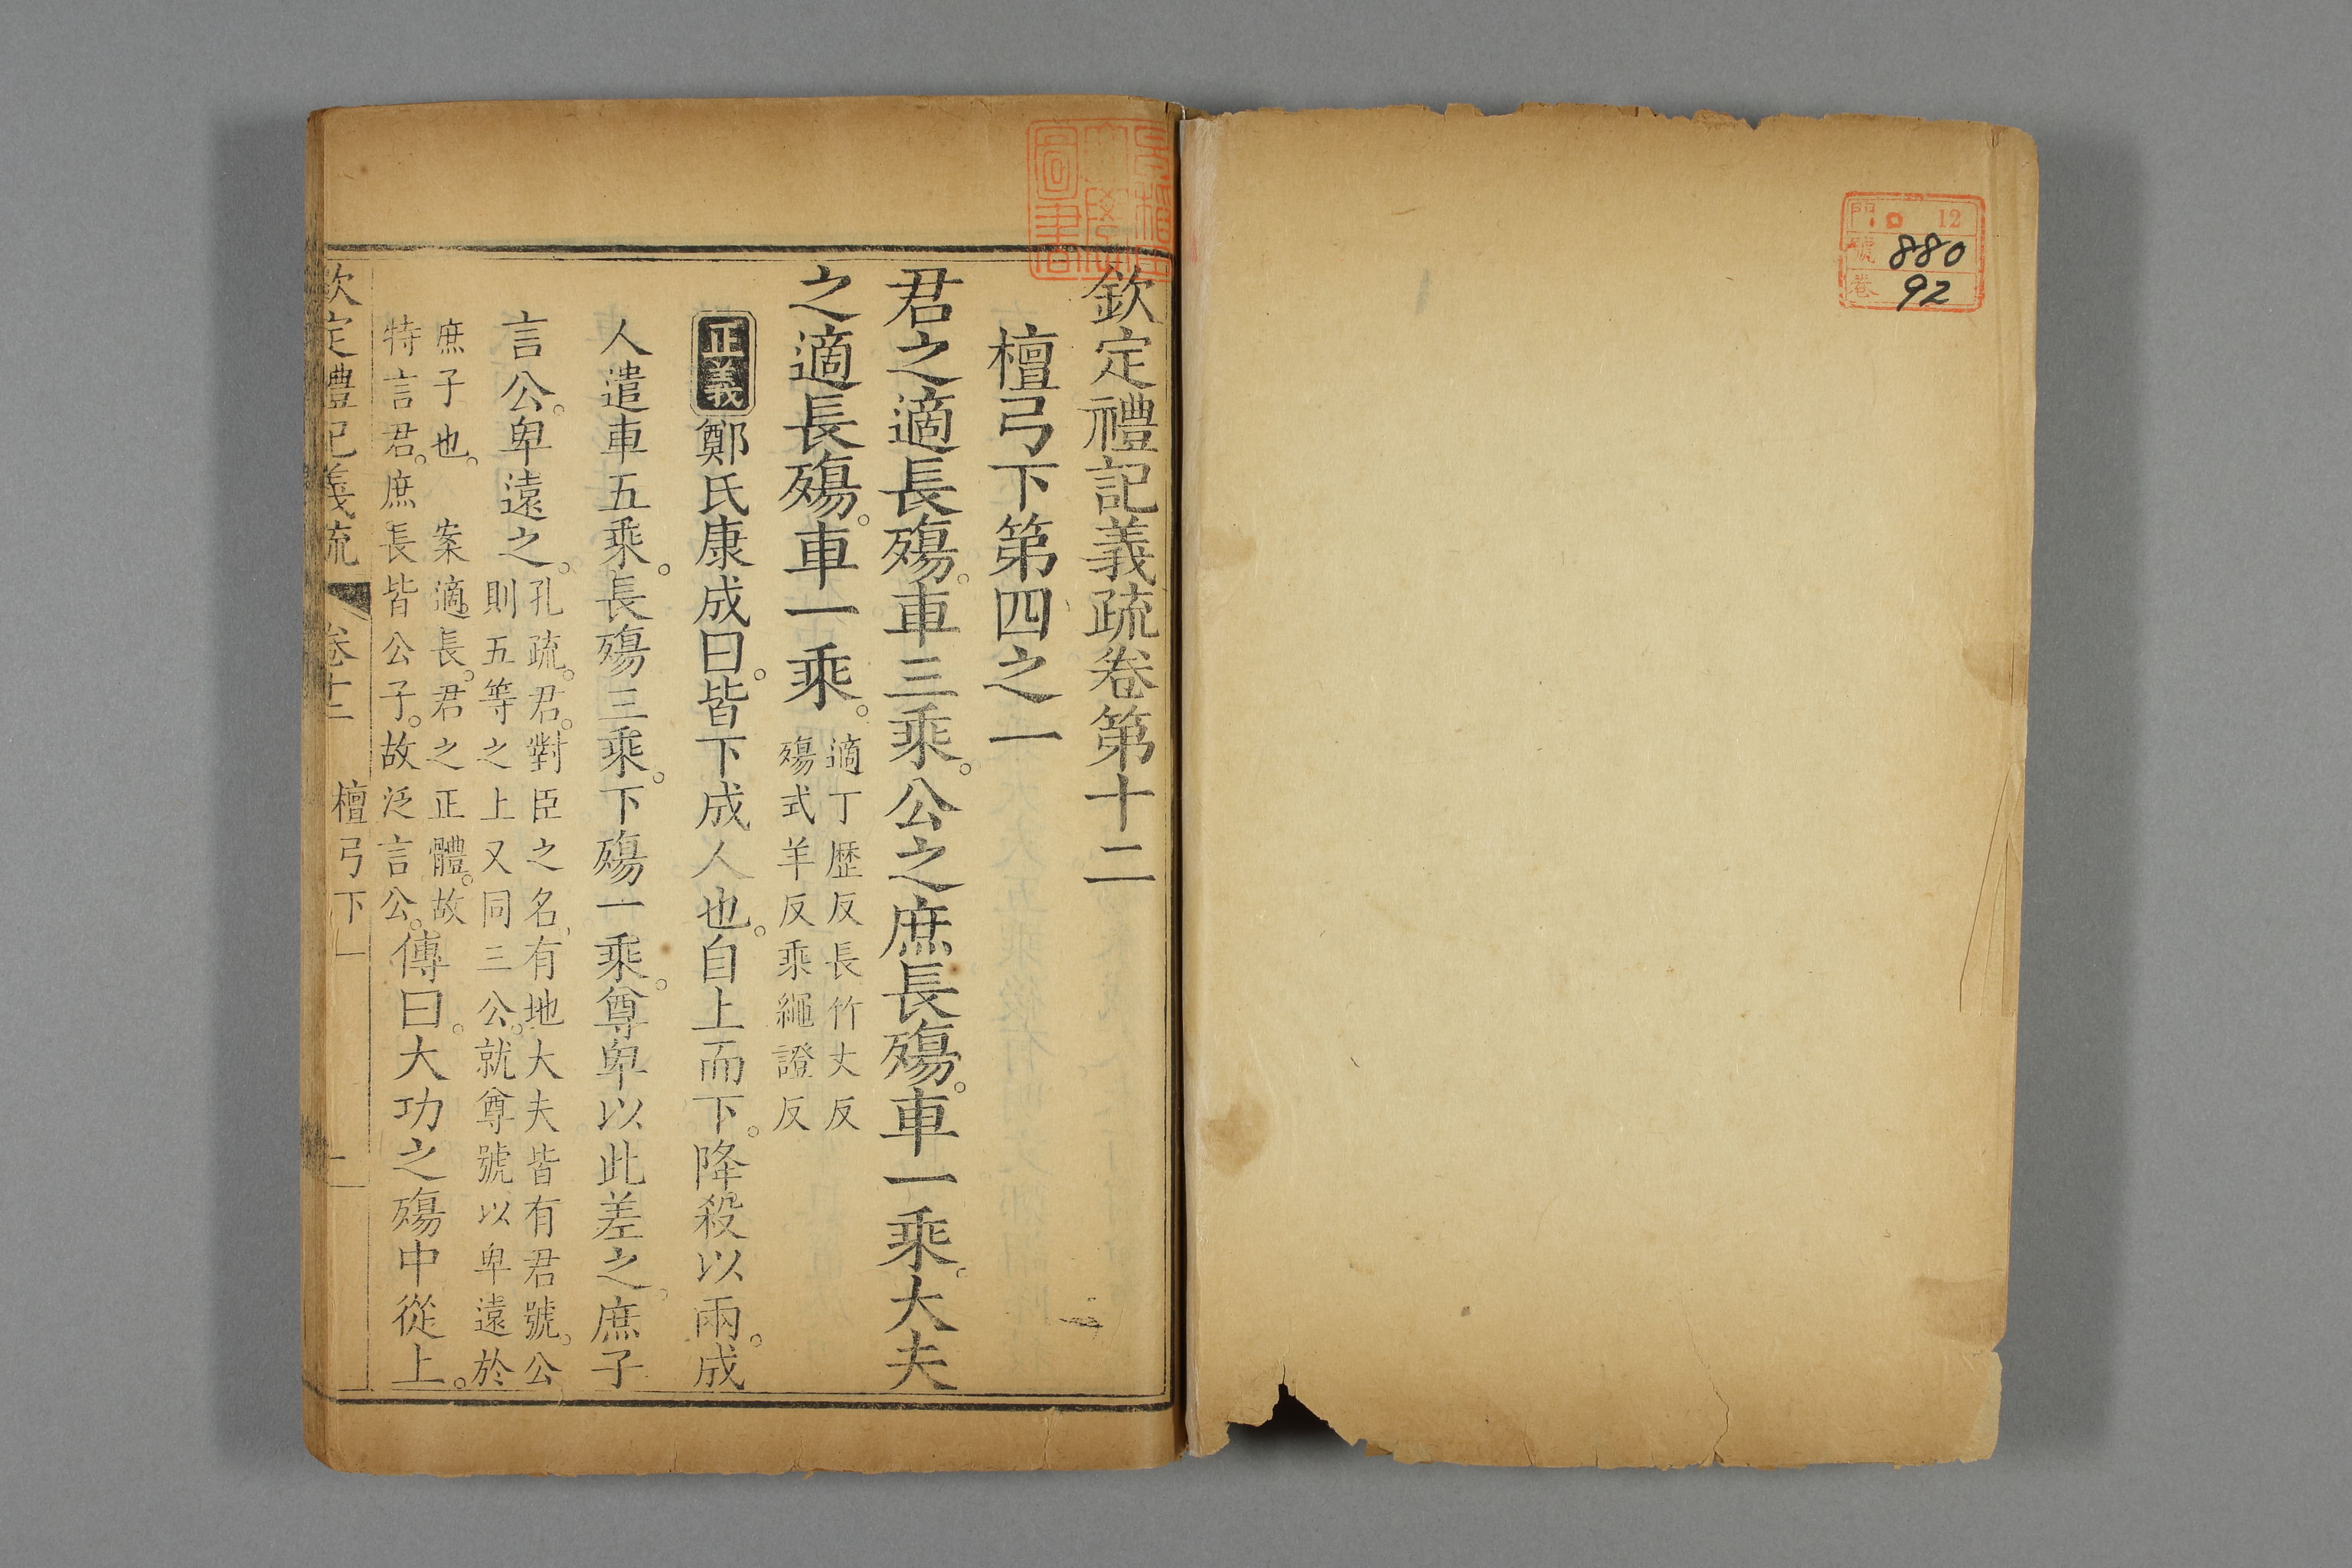 門 12
號 880
卷 92
欽定禮記義疏卷第十二
檀弓下第四之一
君之適長殤。車三乘。公之庶長殤。車一乘。大夫
之適長殤。車一乘。適丁歷反長竹丈反
殤式羊反乘繩證反
正義 鄭氏康成曰。皆下成人也。自上而下。降殺以兩。成
人遣車五乘。長殤三乘。下殤一乘。尊卑以此差之。庶子
言公。卑遠之。孔疏。君。對臣之名。有地大夫皆有君號。公
則五等之上又同三公。就尊號以卑遠於
庶子也。 案適長。君之正體。故
特言君。庶長皆公子。故泛言公。傳曰。大功之殤中從上。
欽定禮記義疏 卷十二 檀弓下 一